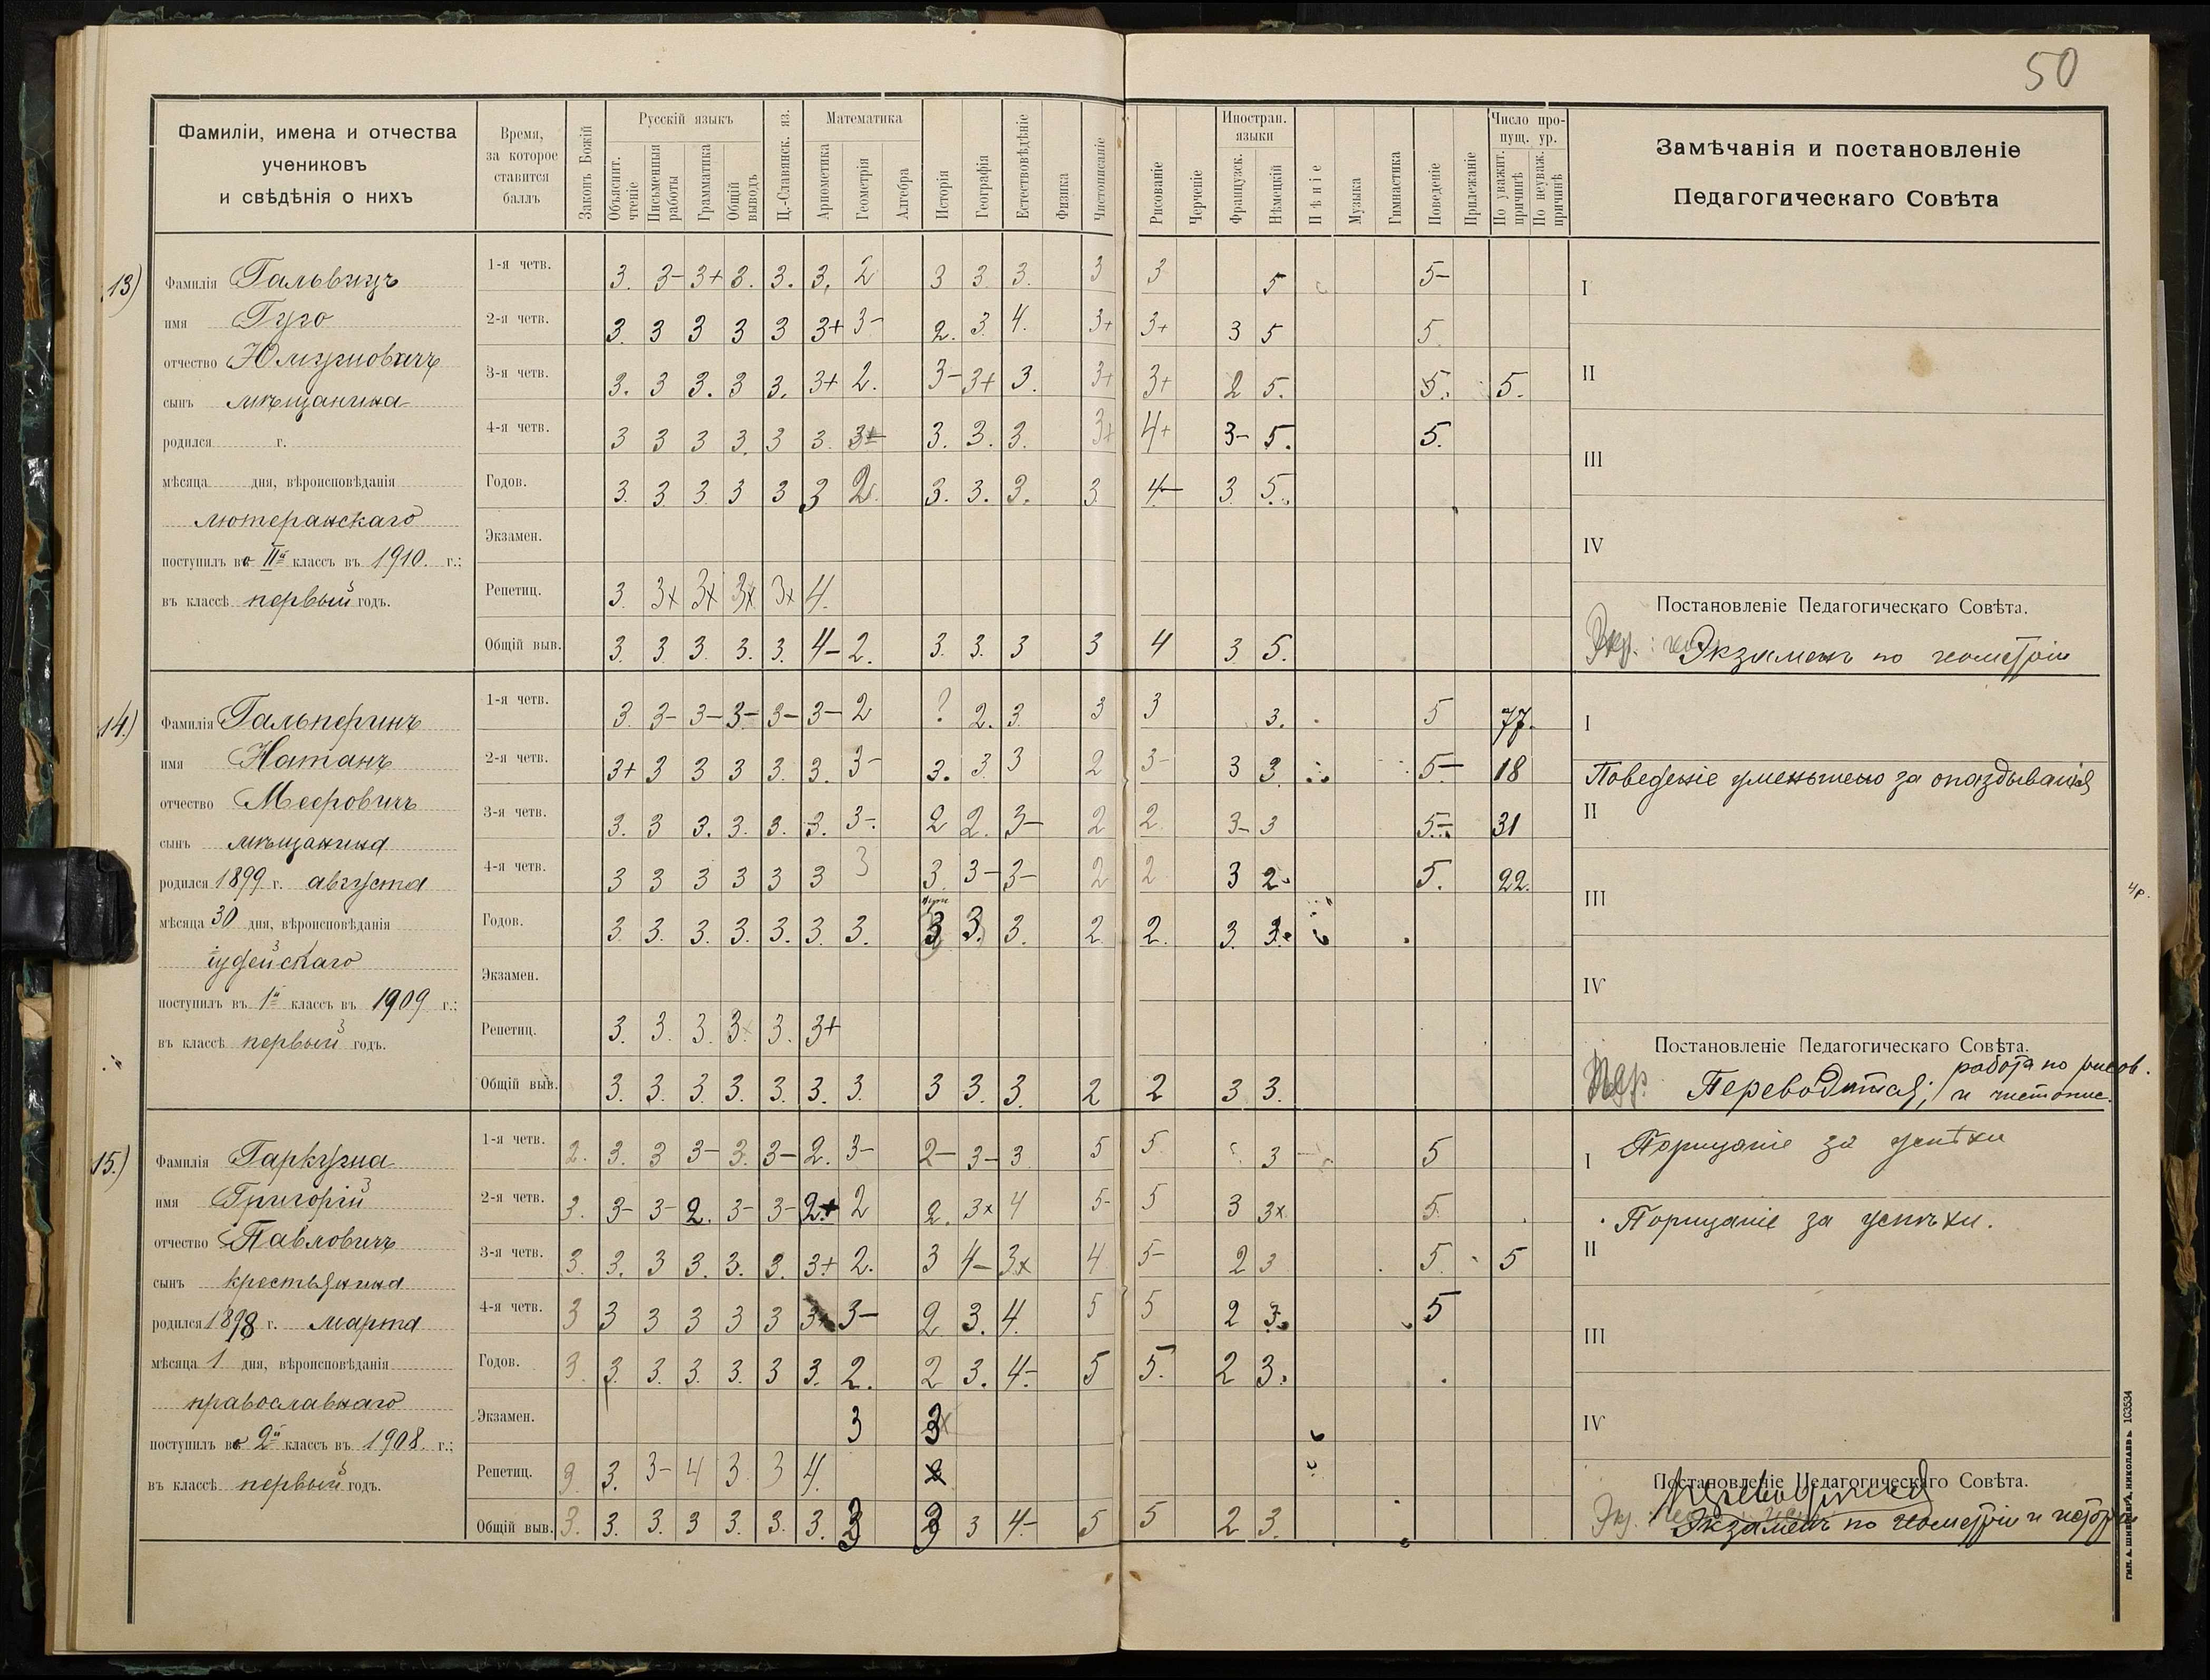 50
Фамиліи, имена и отчества
учениковъ
и свѣдѣнія о нихъ
Время,
за которое
ставится
баллъ
Законъ Божій
Русскій языкъ
Объяснит.
чтеніе
Письменныя
работы
Грамматика
Общій
выводъ
Ц.-Славянск. яз.
Математика
Ариѳметика
Геометрія
Алгебра
Исторія
Географія
Естествовѣдѣніе
Физика
Чистописаніе
Рисованіе
Черченіе
Иностран.
языки
Французск.
Нѣмецкій
Пѣніе
Музыка
Гимнастика
Поведеніе
Прилежаніе
Число про-
пущ. ур.
По уважит.
причинѣ
По неуваж.
причинѣ
Замѣчанія и постановленіе
Педагогическаго Совѣта
13)
Фамилія Гальвицъ
имя Гуго
отчество
сынъ мѣщанина
родился г.
мѣсяца дня, вѣроисповѣданія
лютеранскаго
поступилъ во IIй классъ въ 1910. г.:
въ классѣ первый годъ.
1-я четв. 3. 3- 3+ 3. 3. 3. 2 3 3 3. 3 3 5 5-
2-я четв. 3. 3 3 3 3 3+ 3- 2. 3. 4. 3+ 3+ 3 5 5.
3-я четв. 3. 3 3. 3 3. 3+ 2. 3- 3+ 3. 3+ 3+ 2 5. 5. 5.
4-я четв. 3 3 3 3. 3 3. 3± 3. 3. 3. 3+ 4+ 3- 5. 5.
Годов. 3. 3 3 3 3 3 2. 3. 3. 3. 3 4- 3 5.
Экзамен.
Репетиц. 3. 3x 3x 3x 3x 4.
Общій выв. 3. 3 3. 3. 3. 4- 2. 3. 3. 3 3 4 3 5.
I
II
III
IV
Постановленіе Педагогическаго Совѣта.
Экзаменъ по геометріи
14.)
Фамилія Гальперинъ
имя Натанъ
отчество Мееровичъ
сынъ мѣщанина
родился 1899 г. августа
мѣсяца 30 дня, вѣроисповѣданія
іудейскаго
поступилъ въ 1й классъ въ 1909 г.:
въ классѣ первый годъ.
1-я четв. 3. 3- 3- 3- 3- 3- 2 ? 2. 3. 3 3 3. 5 77.
2-я четв. 3+ 3 3 3 3. 3. 3- 3. 3. 3 2 3- 3 3. 5- 18
3-я четв. 3. 3 3. 3. 3. 3. 3-. 2 2. 3- 2 2. 3- 3 5- 31
4-я четв. 3 3 3 3 3 3 3 3. 3- 3- 2 2 3 2. 5. 22.
Годов. 3. 3. 3. 3. 3. 3. 3. 3 3. 3. 2. 2. 3. 3.
Экзамен.
Репетиц. 3. 3. 3. 3x 3. 3+
Общій выв. 3. 3. 3. 3. 3. 3. 3. 3 3. 3. 2 2 3 3.
I
Поведеніе уменьшено за опаздыванія
II
III
IV
Постановленіе Педагогическаго Совѣта.
Пер. Переводится; работа по рисов.
и чистопис.
15.)
Фамилія Гаркуша
имя Григорій
отчество Павловичъ
сынъ крестьянина
родился 1898 г. марта
мѣсяца 1 дня, вѣроисповѣданія
православнаго
поступилъ во 2й классъ въ 1908. г.:
въ классѣ первый годъ.
1-я четв. 2. 3. 3 3- 3. 3- 2. 3- 2- 3- 3 5 5. 3 5
2-я четв. 3. 3- 3- 2. 3- 3- 2+ 2 2. 3x 4 5- 5 3 3x 5.
3-я четв. 3. 3. 3 3. 3. 3. 3+ 2. 3 4- 3x 4 5- 2 3 5. 5
4-я четв. 3 3 3 3 3 3 3 3- 2 3. 4. 5 5 2 3. 5
Годов. 3. 3. 3. 3. 3. 3 3. 2. 2 3. 4- 5 5. 2 3.
Экзамен. 3 3
Репетиц. 3. 3. 3- 4 3 3 4.
Общій выв. 3. 3. 3. 3 3. 3. 3. 3 3 3 4- 5 5 2 3.
I Порицаніе за успѣхи
Порицаніе за успѣхи.
II
III
IV
Постановленіе Педагогическаго Совѣта.
Переводится
Экзаменъ по геометріи и исторіи